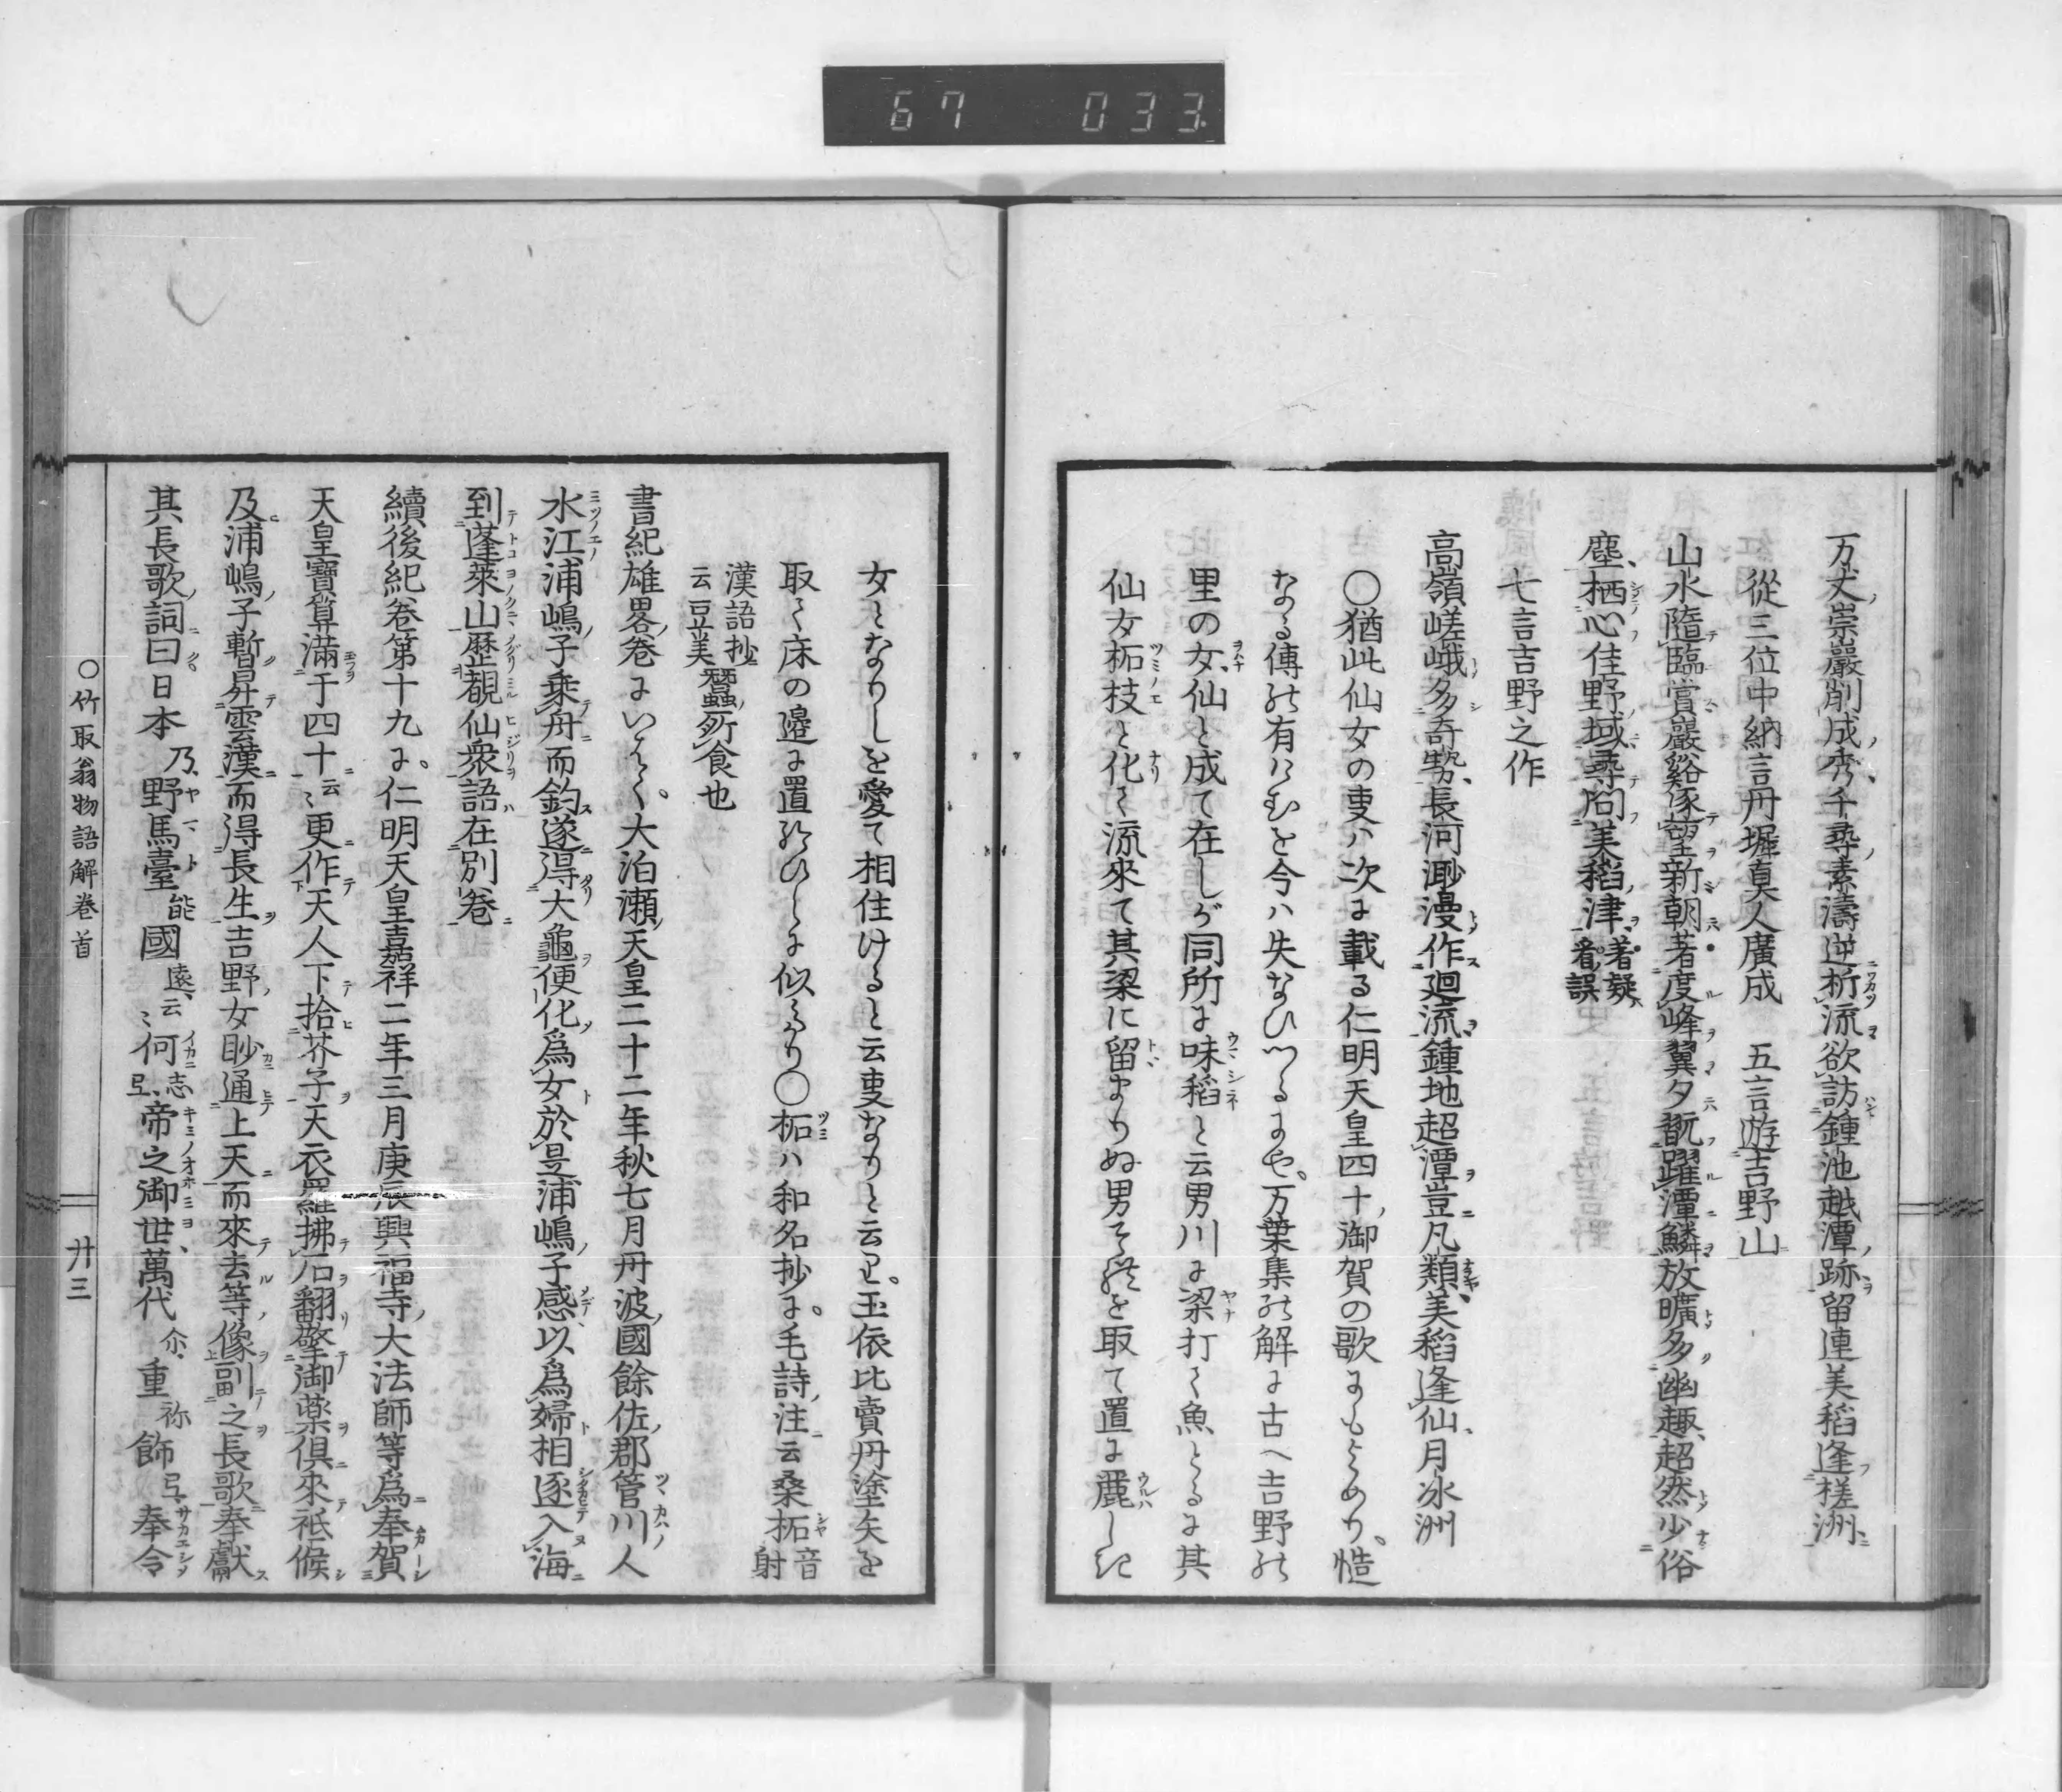 67 033
万丈崇巖削成秀千尋素濤逆析流欲訪鍾池越潭跡留連美稻逢槎洲
從三位中納言丹墀真人廣成 五言遊吉野山
山水隨臨賞巖谿逐望新朝著度峰翼夕翫躍潭鱗放曠多幽趣超然少俗
塵栖心佳野域尋問美稻津 著疑
者誤
七言吉野之作
高嶺嵯峨多奇勢長河渺漫作廻流鍾地超潭豈凡類美稻逢仙月冰洲
〇猶此仙女の叓ハ次に載る仁明天皇四十御賀の歌にもよめり惜
なる傳の有けむを今ハ失なひつるにや万葉集の解に古へ吉野の
里の女仙と成て在しが同所に味稻と云男川に梁打て魚とるに其
仙女柘枝と化て流來て其梁に留まりぬ男それを取て置に麗しき
女となりしを愛て相住けると云叓なりと云り玉依比賣丹塗矢を
取て床の邊に置給ひしに似たり〇柘ハ和名抄に毛詩注云桑柘音
射
漢語抄
云豆美蠶所食也
書紀雄畧卷にいはく大泊瀬天皇二十二年秋七月丹波國餘佐郡管川人
水江浦嶋子乗舟而釣遂得大龜便化爲女於是浦嶋子感以爲婦相逐入海
到蓬萊山歴覩仙衆語在別卷
續後紀卷第十九に仁明天皇嘉祥二年三月庚辰興福寺大法師等爲奉賀
天皇寶算滿于四十云〻更作天人下拾芥子天衣羅拂石翻擎御藥倶來祗候
及浦嶋子暫昇雲漢而得長生吉野女眇通上天而來去等像副之長歌奉獻
其長歌詞曰日本乃野馬臺能國遠云〻何志弖帝之御世萬代尒重祢飾弖奉令
〇竹取翁物語解卷首 廾三